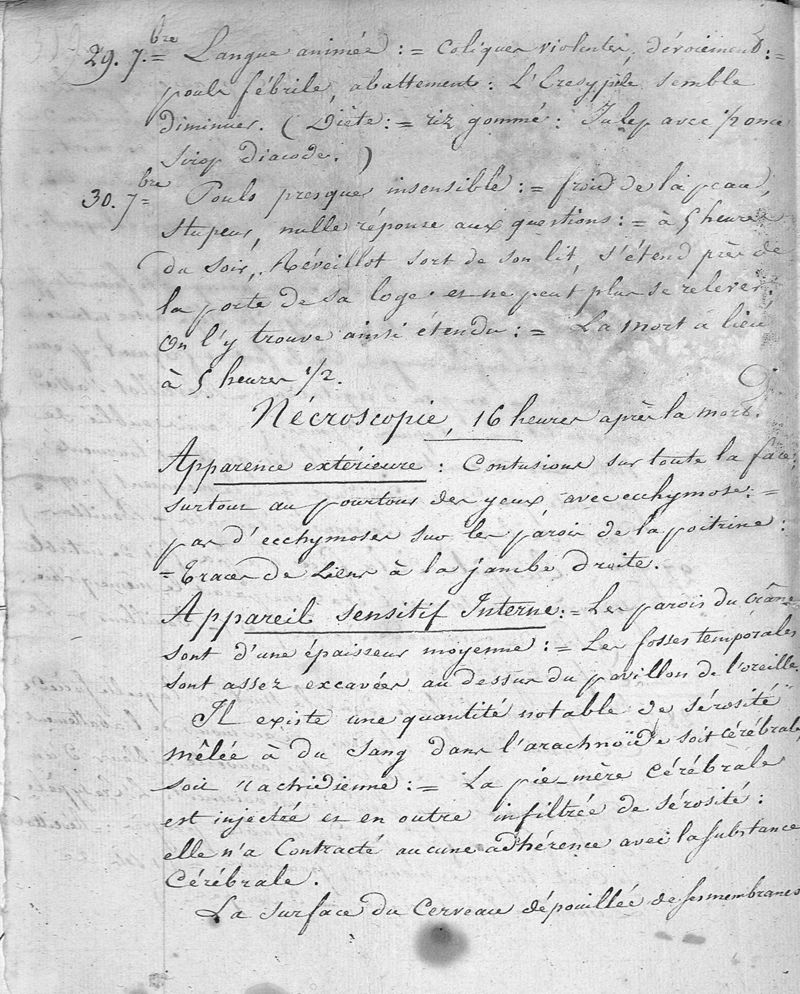 29. 7.bre = Langue animée := Coliques violentes, dévoiement :=
pouls fébrile, abattement : L'Eresypèle semble
diminuer. (Diète := riz gommé : Julep avec 1/2 once
Sirop diacode.)
30. 7bre = Pouls presque insensible := froid de la peau,
stupeur, nulle réponse aux questions := à 5 heures
du soir, Réveillot sort de son lit, s'étend près de
la porte de sa loge et ne peut plus se relever.
On l'y trouve ainsi étendu := La mort a lieu
à 5 heures 1/2.
Nécroscopie, 16 heures après la mort.
Apparence extérieure : Contusions sur toute la face :
surtout au pourtour des yeux avec ecchymose :=
pas d'ecchymoses sur les parois de la poitrine :
= Traces de Liens à la jambe droite.
Appareil sensitif Interne := Les parois du crâne
sont d'une épaisseur moyenne := Les fosses temporales
sont assez excavées au dessus du pavillon de l'oreille.
Il existe une quantité notable de sérosité
mêlée à du Sang dans l'arachnoïde soit cérébrale,
soit rachidienne := La pie-mère Cérébrale
est injectée et en outre infiltrée de sérosité :
elle n'a Contracté aucune adhérence avec la substance
Cérébrale.
La surface du Cerveau dépouillée de ses membranes